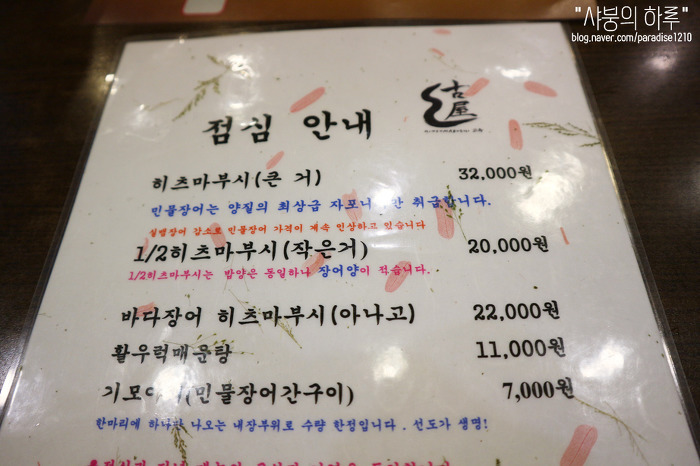 "샤붕의 하루"
blog.naver.com/paradise1210
古屋
점심 안내
히츠마부시(큰 거) 32,000원
민물장어는 양질의 최상급 자포니 만 취급합니다.
실뱀장어 감소로 민물장어 가격이 계속 인상하고 있습니다
1/2히츠마부시(작은거) 20,000원
1/2히츠마부시는 밥양은 동일하나 장어양이 적습니다.
바다장어 히츠마부시(아나고) 22,000원
활우럭매운탕 11,000원
기모 (민물장어간구이) 7,000원
한마리에 하나 나오는 내장부위로 수량 한정입니다. 선도가 생명!